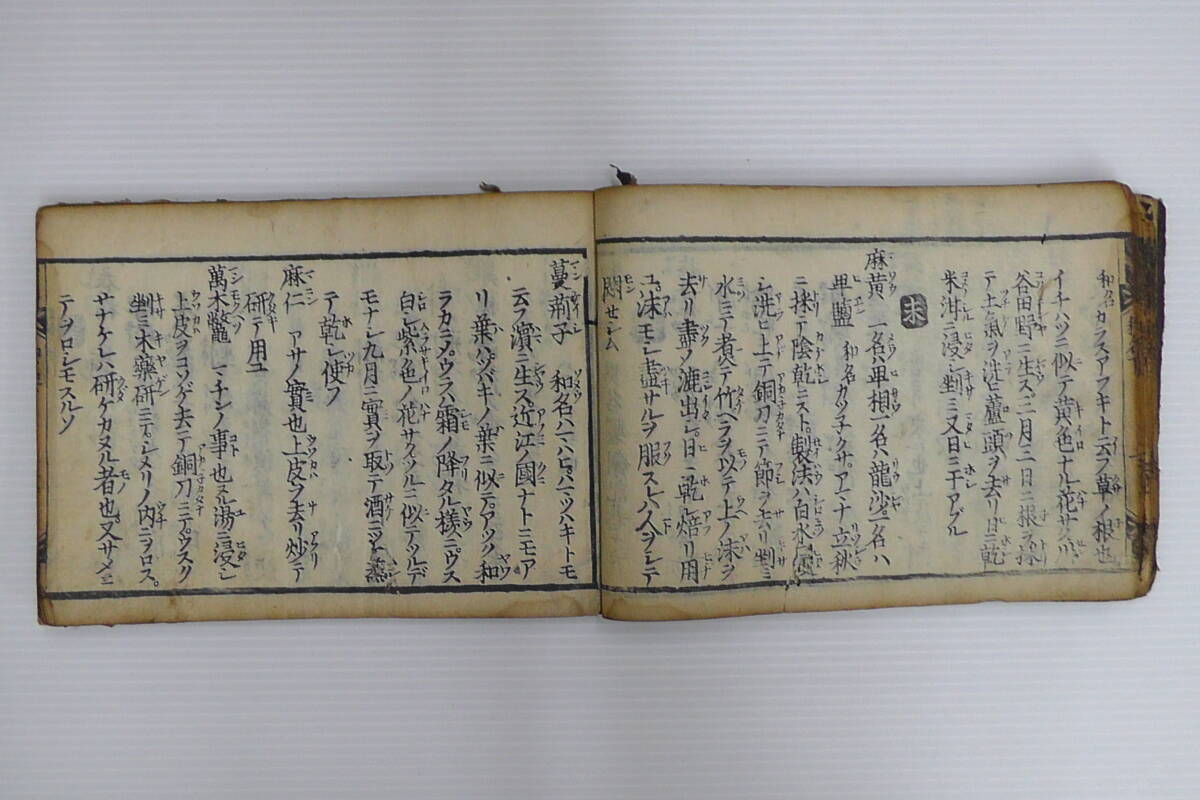 和名カラスアフキト云フ草ノ根也
イチハツニ似テ黄色ナル花サク川
谷田野ニ生ス二月三日ニ根ヲ採
テ土氣ヲ洗ヒ蘆頭ヲ去リ日ニ乾
米泔ニ浸シ剉ミ又日ニ干アゲル
末
麻黄 一名卑相一名ハ龍沙一名ハ
卑鹽 和名カツチクサ アマナ立秋
ニ採テ陰乾ニスト製法ハ白水
シ洗ヒ上テ銅刀ニテ節ヲセハリ剉ミ
水ニテ煮テ竹ヘラヲ以テ上ノ沫ヲ
去リ盡ノ漉出シ日ニ乾シ焙リ用
ユ沫モシ盡サルヲ服スレハ人ヲシテ
悶せシム
蔓荊子 和名ハマハヒハマツハキトモ
ニ云フ濱ニ生ス近江ノ國ナトニモア
リ葉ハツバキノ葉ニ似テアツク和
ラカニメウラハ霜ノ降タル様ニウス
白シ紫色ノ花サクツルニ似テツルデ
モナシ九月ニ實ヲ取テ酒ニツケ蒸
テ乾シ使フ
麻仁 アサノ實也上皮ヲ去リ炒テ
研テ用ユ
萬木鼈 マチンノ事也ヌル湯ニ浸シ
上皮ヲコソゲ去テ銅刀ニテウスク
剉ミ木藥研ニテシメリノ内ニヲロス
サナケレハ研ケカヌル者也又サメニ
テヲロシモスルソ